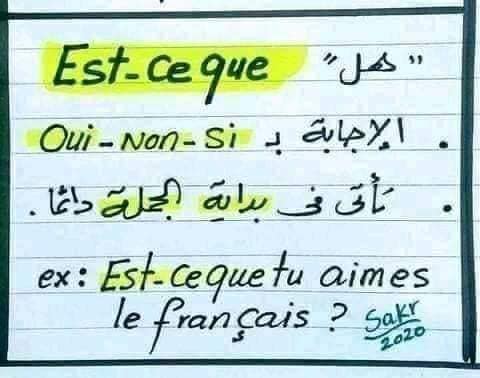 Est-ce que "هل"
. الإجابة بـ Oui - Non - Si
. تأتى فى بداية الجملة دائمًا.
ex: Est-ce que tu aimes
le français ? Sakr
2020